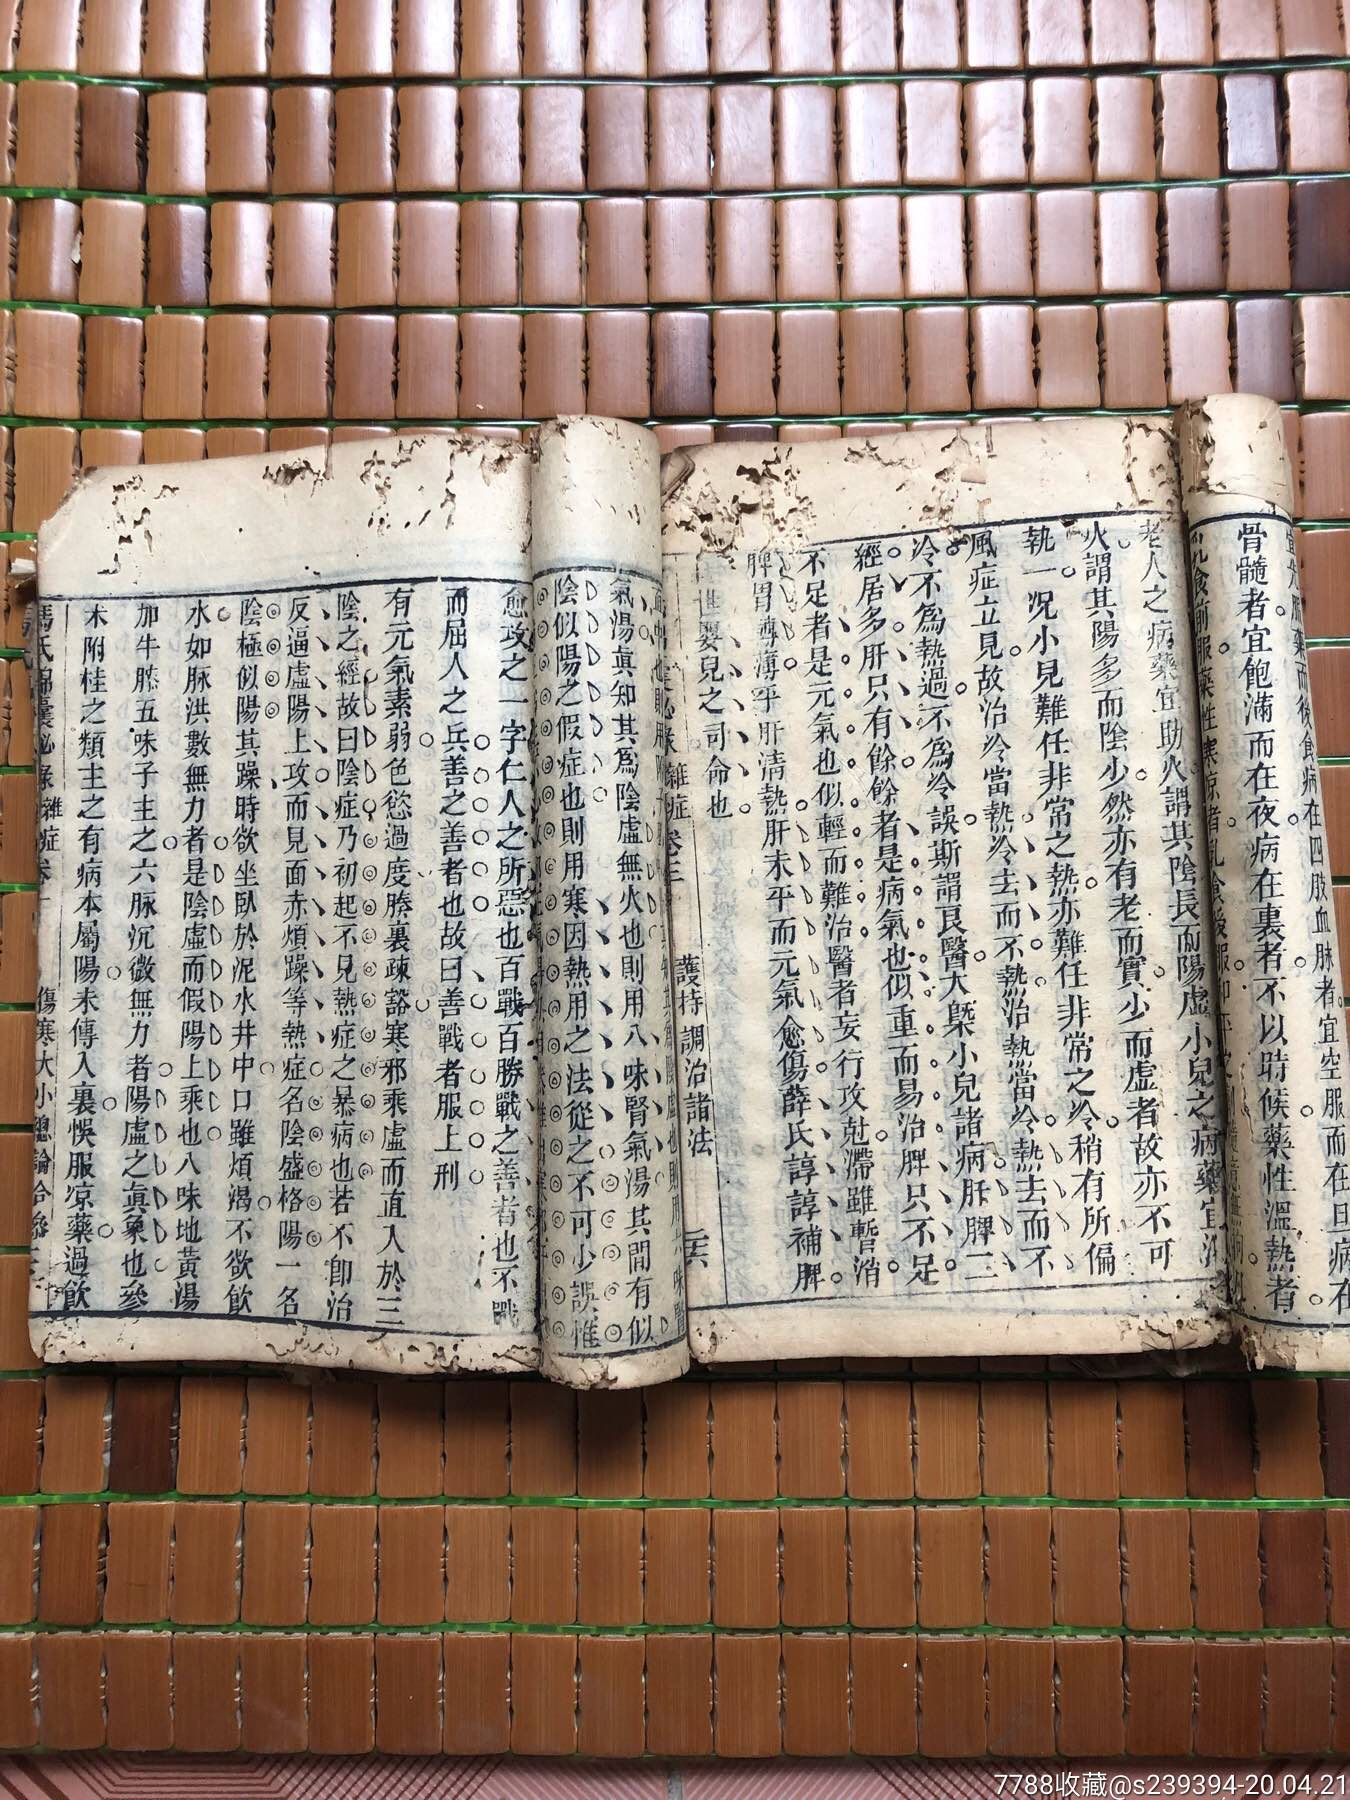 骨髓者宜飽滿而在夜病在裏者不以時候藥性溫熱者
老人之病藥宜助火謂其陰長而陽虛小兒之病藥宜
火謂其陽多而陰少然亦有老而實少而虛者故亦不可
執一況小兒難任非常之熱亦難任非常之冷稍有所偏
風症立見故治冷當熱冷去而不熱治熱當冷熱去而不
冷不爲熱過不爲冷誤斯謂良醫大槩小兒諸病肝脾二
經居多肝只有餘餘者是病氣也似重而易治脾只不足
不足者是元氣也似輕而難治醫者妄行攻尅滯雖暫消
脾胃轉薄平肝清熱肝未平而元氣愈傷薛氏諄諄補脾
嬰兒之司命也
雜症 卷三 護持調治諸法
氣湯眞知其爲陰虛無火也則用八味腎氣湯其間有似
陰似陽之假症也則用寒因熱用之法從之不可少誤惟
愈攻之一字仁人之所惡也百戰百勝戰之善者也不戰
而屈人之兵善之善者也故曰善戰者服上刑
有元氣素弱色慾過度腠裏疎豁寒邪乘虛而直入於三
陰之經故曰陰症乃初起不見熱症之暴病也若不卽治
反逼虛陽上攻而見面赤煩躁等熱症名陰盛格陽一名
陰極似陽其躁時欲坐臥於泥水井中口雖煩渴不欲飲
水如脉洪數無力者是陰虛而假陽上乘也八味地黃湯
加牛膝五味子主之六脉沉微無力者陽虛之眞象也參
朮附桂之類主之有病本屬陽未傳入裏悞服凉藥過飲
馮氏錦囊秘錄 雜症 傷寒大小總論合參
7788收藏@s239394-20.04.21